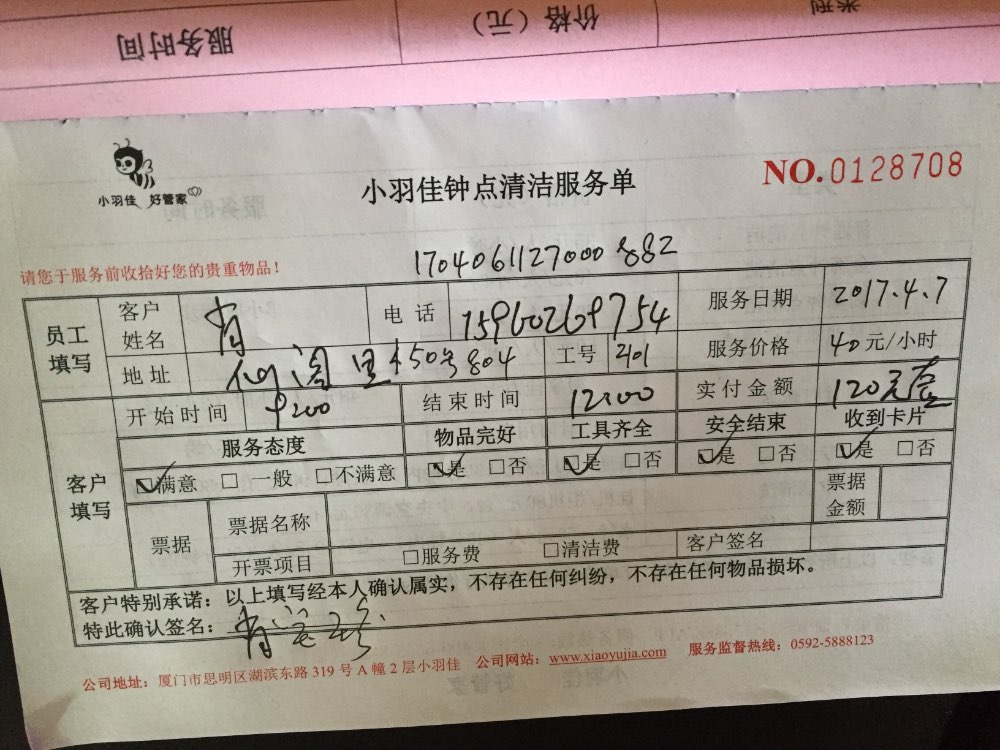 服务时间 价格（元） 类别
小羽佳 好管家
小羽佳钟点清洁服务单
NO.0128708
请您于服务前收拾好您的贵重物品！
1704061127000882
员工填写 客户姓名 肖 电话 15960269754 服务日期 2017.4.7
地址 仙阁里 150号804 工号 201 服务价格 40元/小时
客户填写 开始时间 9:00 结束时间 12:00 实付金额 120元
服务态度 物品完好 工具齐全 安全结束 收到卡片
☑满意 □一般 □不满意 ☑是 □否 ☑是 □否 ☑是 □否 ☑是 □否
票据 票据名称 票据金额
开票项目 □服务费 □清洁费 客户签名
客户特别承诺：以上填写经本人确认属实，不存在任何纠纷，不存在任何物品损坏。
特此确认签名：肖
公司地址：厦门市思明区湖滨东路 319 号 A 幢 2 层小羽佳 公司网站：www.xiaoyujia.com 服务监督热线：0592-5888123